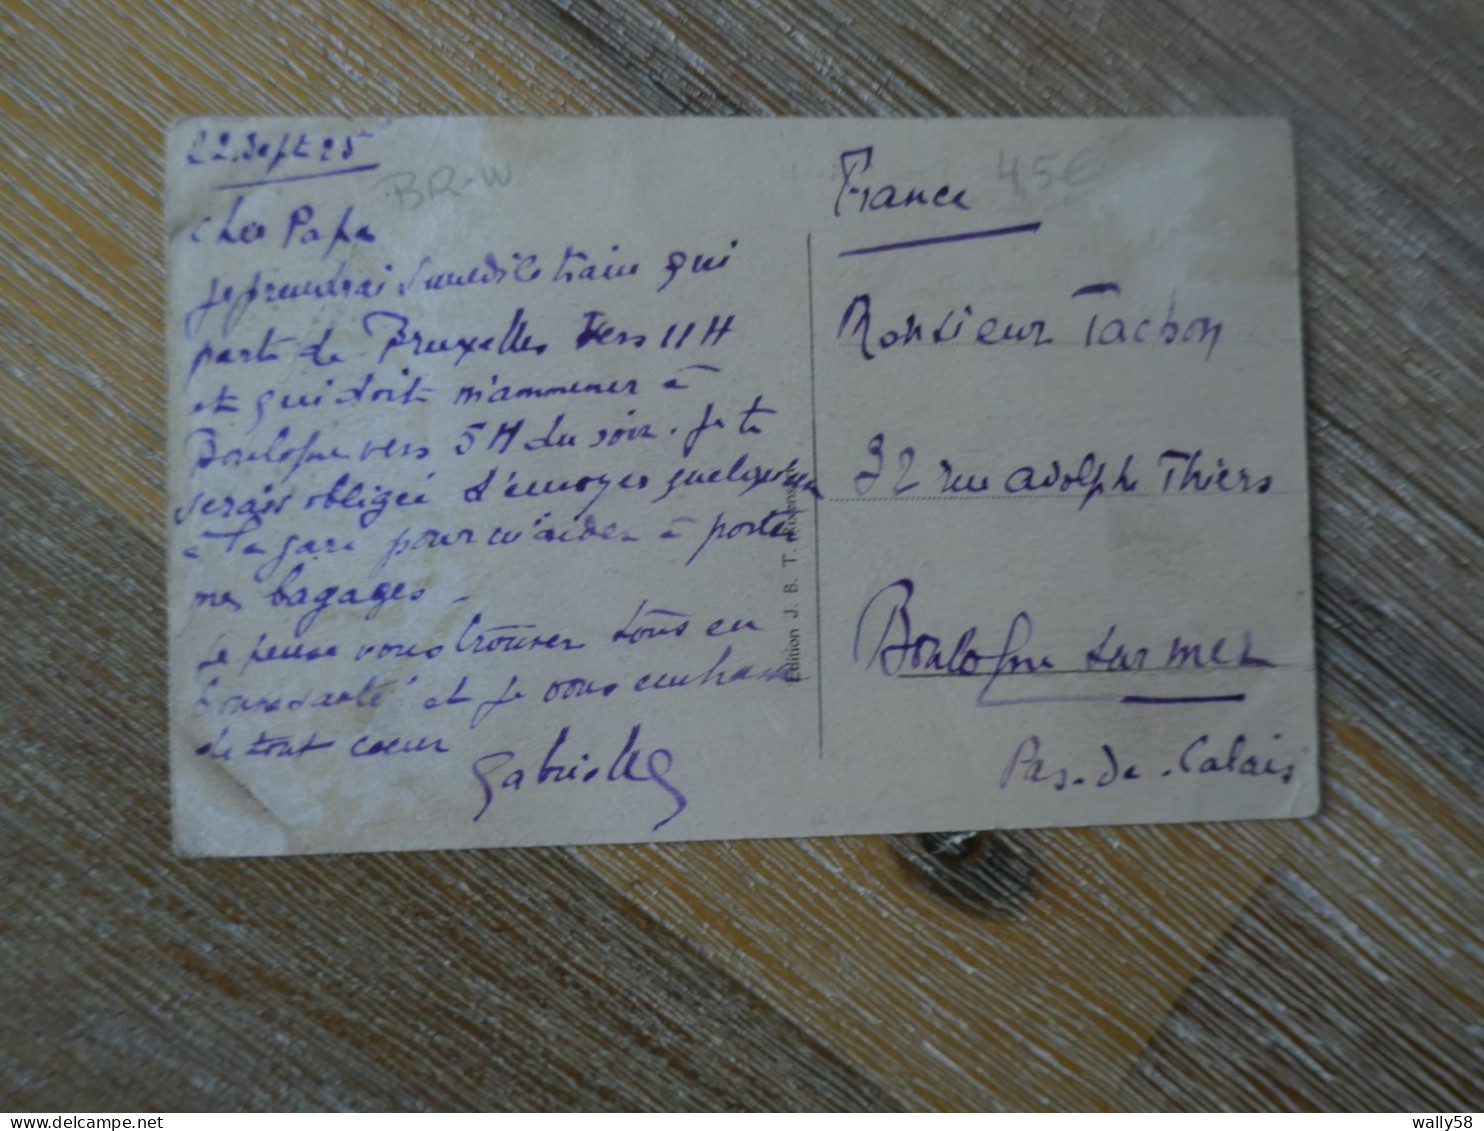 22 Sept 25
BR-W
Cher Papa
je prendrai Samedi le train qui
part de Bruxelles vers 11H
et qui doit m'ammener à
Boulogne vers 5H du soir. Je te
serais obligée d'envoyer quelqu'un
à la gare pour m'aider à porter
mes bagages -
je pense vous trouver tous en
bonne santé et je vous embrasse
de tout cœur
Gabrielle
Edition J. B. T.
France
4,5€
Monsieur Tachon
32 rue Adolphe Thiers
Boulogne sur mer
Pas-de-Calais
wally58